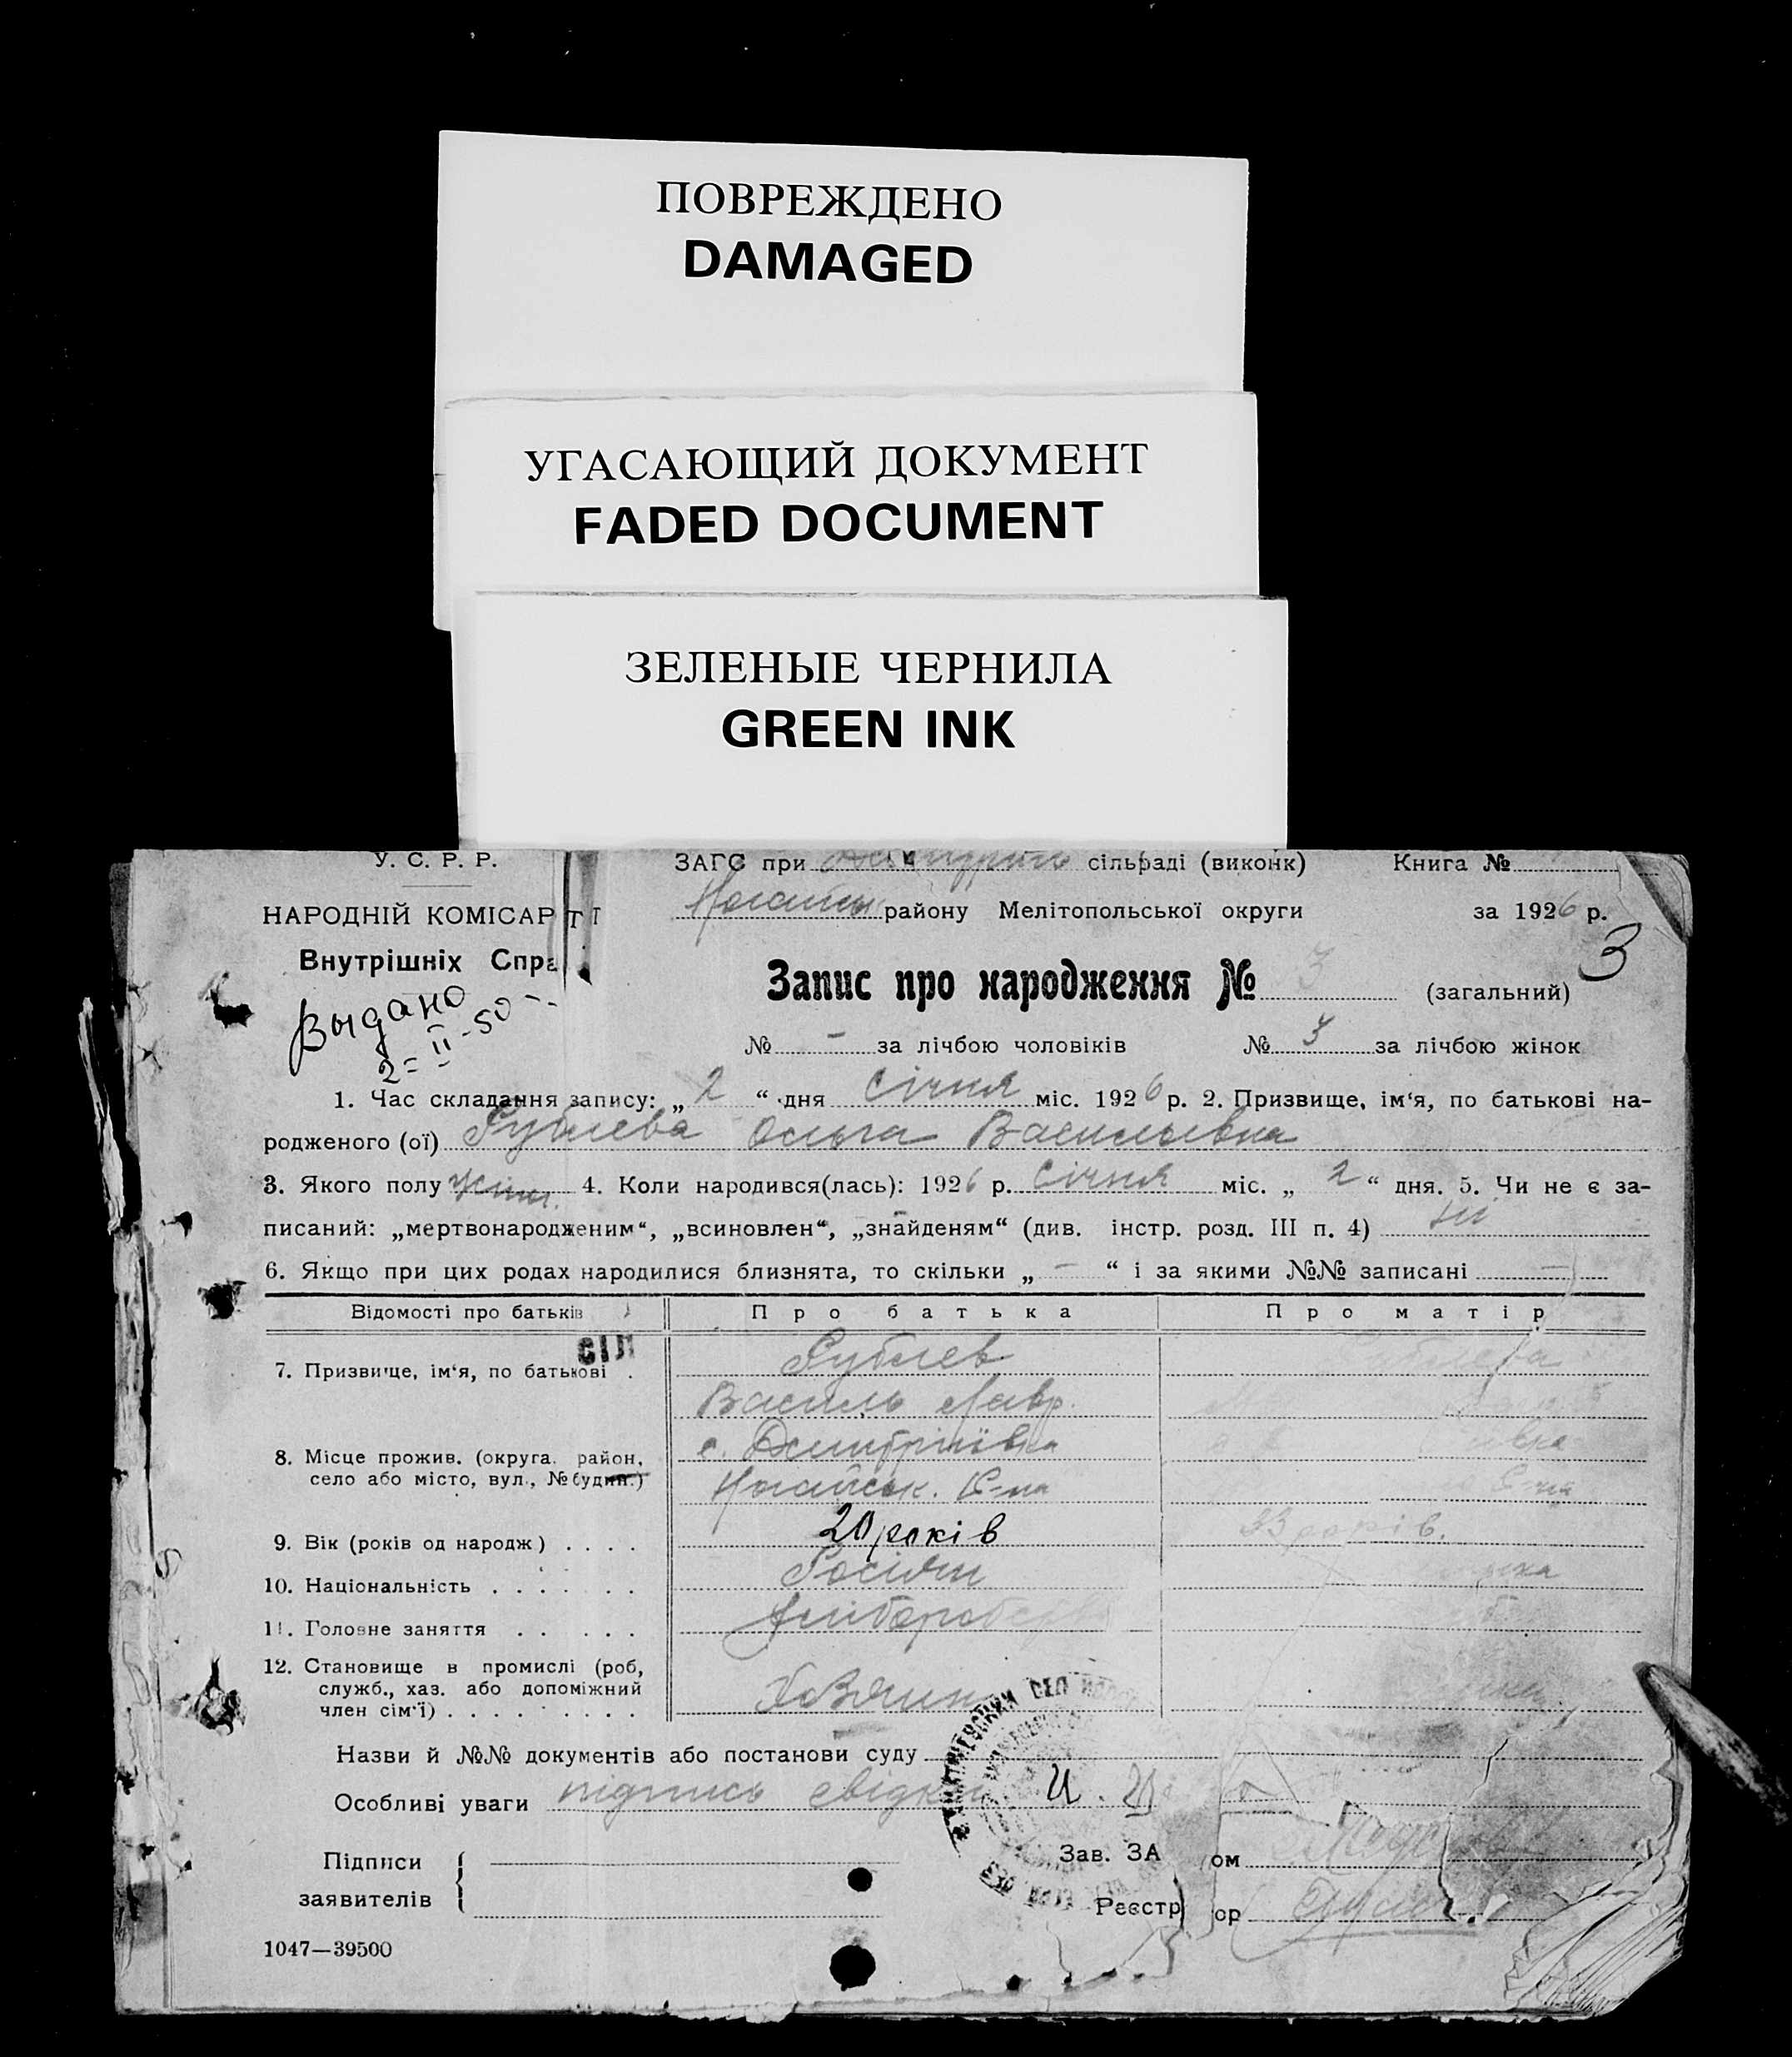 ПОВРЕЖДЕНО
DAMAGED
УГАСАЮЩИЙ ДОКУМЕНТ
FADED DOCUMENT
ЗЕЛЕНЫЕ ЧЕРНИЛА
GREEN INK
У. С. Р. Р.
ЗАГС при сільраді (виконк) Книга №
НАРОДНІЙ КОМІСАР Т
району Мелітопольської округи за 1926 р.
Внутрішніх Спра
3
Запис про народження № 3 (загальний)
Выдано
2 = II - 50
№ - за лічбою чоловіків № 3 за лічбою жінок
1. Час складання запису: „ 2 “ дня Січня міс. 1926 р. 2. Призвище, ім'я, по батькові на-
родженого (ої) Рублева Ольга Васильевна
3. Якого полу жіноч. 4. Коли народився(лась): 1926 р. Січня міс. „ 2 “ дня. 5. Чи не є за-
писаний: „мертвонародженим“, „всиновлен“, „знайденям“ (див. інстр. розд. III п. 4) ні
6. Якщо при цих родах народилися близнята, то скільки „ - “ і за якими №№ записані -
Відомості про батьків Про батька Про матір
СІЛ
7. Призвище, ім'я, по батькові . Рублев Рублева
Василь Лавр.
8. Місце прожив. (округа, район, с. Дмитріївка
село або місто, вул., № будин.) Ногайськ. Р-на Р-на
9. Вік (років од народж) . . . . 20 років 33 років.
10. Національність . . . . . . Росіян
11. Головне заняття . . . . . хліборобство
12. Становище в промислі (роб,
служб., хаз. або допоміжний Хозяин
член сім'ї) . . . . . . . . .
Назви й №№ документів або постанови суду
Особливі уваги підпись свідків
Підписи Зав. ЗА ом
заявителів Реєстр ор
1047—39500